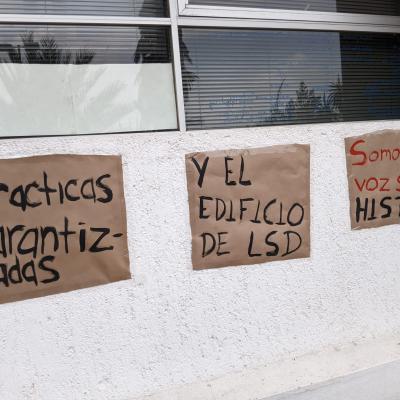 racticas
arantiz-
adas
Y EL
EDIFICIO
DE LSD
Somo
voz s
HIST